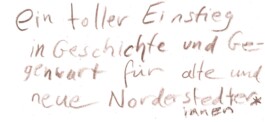 ein toller Einstieg
in Geschichte und Ge-
genwart für alte und
neue Norderstedter*
innen